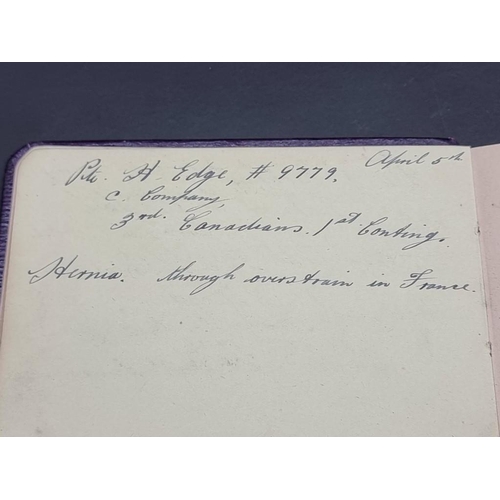 April 5th
Pte. H. Edge, # 9779.
C. Company,
3rd. Canadians. 1st Conting.
Hernia. through overstrain in France.